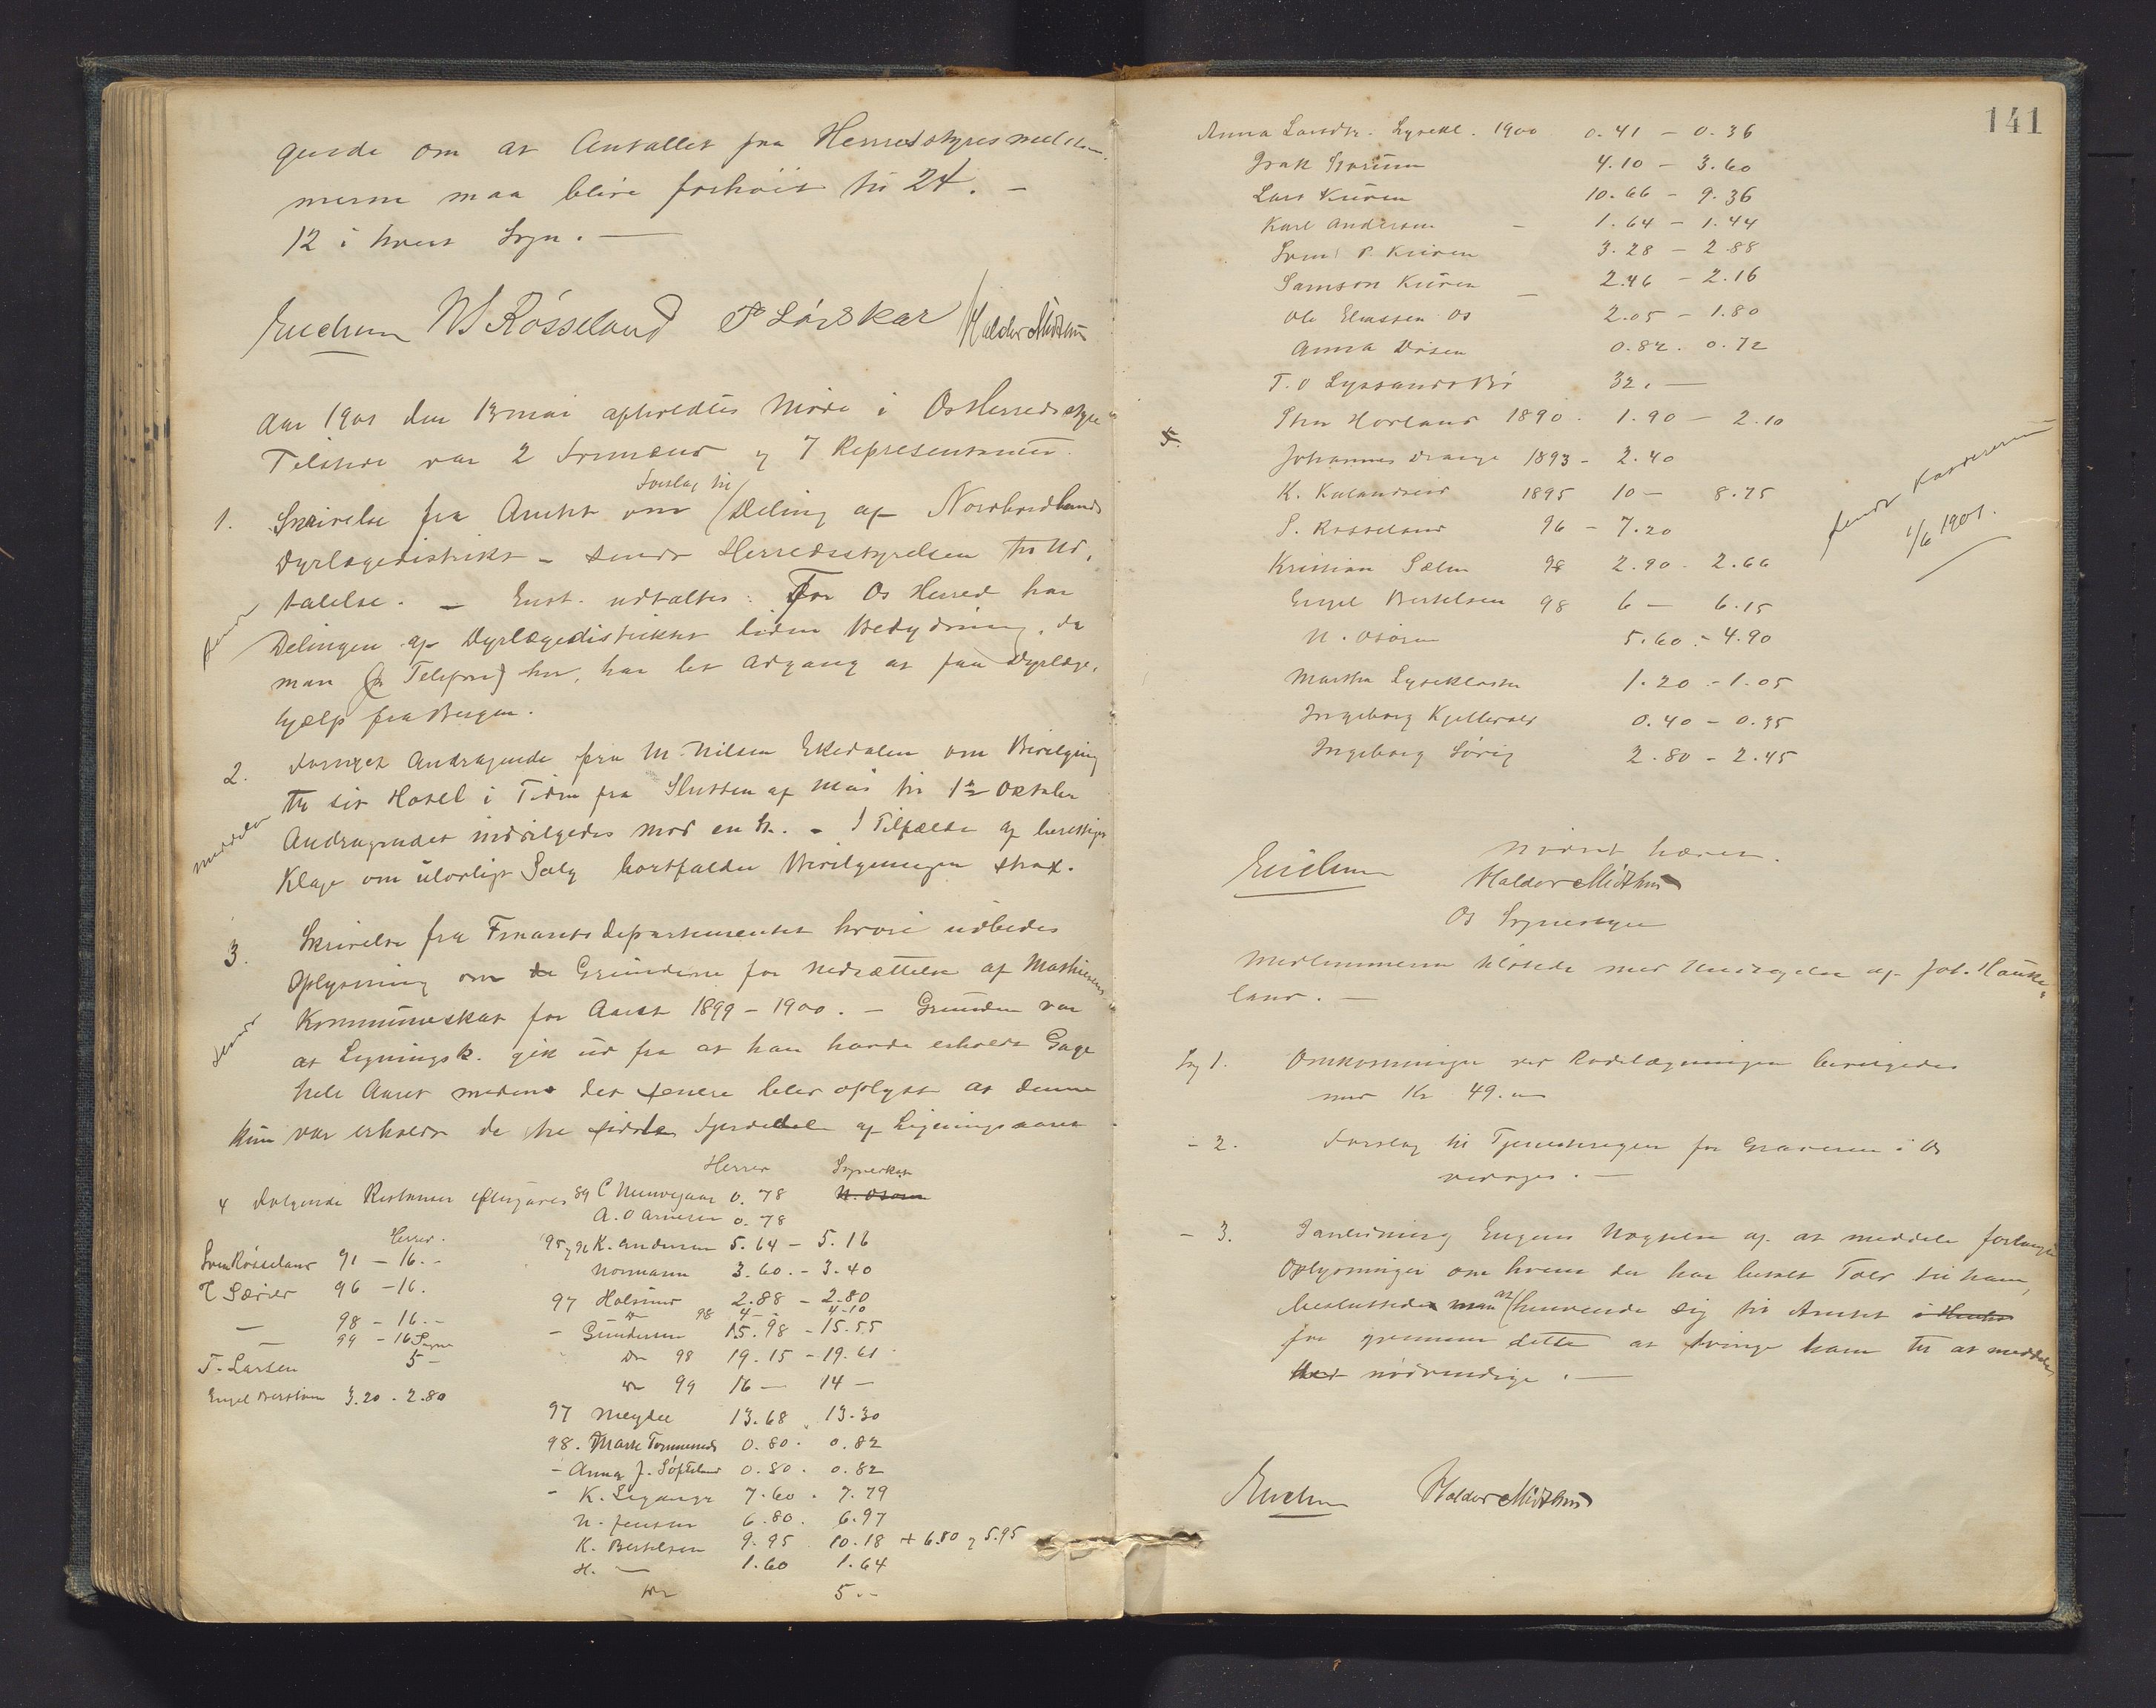 gende om at Antallet fra Herredsstyres medlem-
merne maa blive forhøiet til 24. -
12 i hvert Sogn. -
NS Røsseland Haldor Midthus
Aar 1901 den 13 mai afholdtes Møde i Os Herredsstyre
Tilstede var 2 Formænd og 7 Repræsentanter.
Forslag til
1. Skrivelse fra Amtet om Deling af Nordhordlands
Dyrlægedistrikt - sendt Herredsstyrelsen til Ud-
talelse. - Enst. udtaltes: For Os Herred har
sendt
Delingen af Dyrlægedistriktet liden Betydning, da
man (pr Telefon) her, har let Adgang at faa Dyrlæge-
hjælp fra Bergen.
2. Fornyet Andragende fra M. Nilsen Ekedalen om Bevilgning
til sit Hotel i Tiden fra Slutten af Mai til 1ste Oktober
meddelt
Andragendet indvilgedes mod en St. - I Tilfælde af berettiget
Klage om ulovligt Salg bortfalder Bevilgningen strax.
3. Skrivelse fra Finantsdepartementet hvori udbedes
Oplysning om de Grundene for Nedsættelse af Mathiesens
Kommuneskat for Aaret 1899 - 1900. - Grunden var
sendt
at Ligningsk. gik ud fra at han havde erholdt Gage
hele Aaret medens det senere blev oplyst at denne
kun var erholdt de tre sidste Fjerdedele af Ligningsaaret
Herred Sogneskat
4 Følgende Restanser eftergives 89 C Meuwejaar 0.78 N. Osøren
A. O Arnesen 0.78
Herred.
Sven Røsseland 91 - 16.-
95 og 96 K. Andersen 5.64 - 5.16
Normann 3.60. - 3.40
96 - 16.
97 Holsund 2.88 - 2.80
Do 98 4 - 4-10
- 98 - 16.-
- Gundersen 15.98 - 15.55
- 99 - 16 Sogne
Do 98 19.15 - 19.61
T. Larsen 5 -
Do 99 16 - 14 -
Engel Bertelsen 3.20 - 2.80
97 Meydell 13.68 13.30
98. Marte Tommened 0.80. 0.82
- Anna J. Søfteland 0.80. 0.82
- K. Legange 7.60. 7.79
N. Jensen 6.80. 6.97
K. Bertelsen 9.95 10.18 + 6.80 og 5.95
H. - 1.60 1.64
Do 5.-
141
Anna Larsdtr. Lysekl. 1900 0.41 - 0.36
Isak 4.10 - 3.60
Lars Kuven 10.66 - 9.36
Karl Andersen - 1.64 - 1.44
Sven P. Kuven 3.28 - 2.88
Samson Kuven - 2.46 - 2.16
Ole Eliassen Os 2.05 - 1.80
Anna Døsen 0.82. 0.72
T. O Lyssandsbø 32. -
5. Sten Hovland 1890. 1.90 - 2.10
Johannes Drange 1893 - 2.40
K. Kulandseid 1895 10 - 8.75
S. Røsseland 96 - 7.20
sendt Kassereren
1/6 1901.
Kristian Sælen 98 2.90. 2.66
Engel Bertelsen 98 6 - 6.15
N. Osøren 5.60. - 4.90
Martha Lysekloster 1.20 - 1.05
Ingeborg Kjellevold 0.40 - 0.35
Ingeborg Søvig 2.80 - 2.45
Mødet hævet.
Haldor Midthus
Os Sognestyre
Medlemmerne tilstede med Undtagelse af Joh. Hauke-
land. -
Sag 1. Omkostninger ved Rodelægningen bevilgedes
med Kr 49.00
- 2. Forslag til Tjenesteregler for Graveren i Os
vedtoges. -
- 3. I Anledning Engens Vægrelse af at meddele forlangte
Oplysninger om hvem der har betalt Told til ham,
besluttedes man at henvende sig til Amtet
for gjennem dette at tvinge ham til at meddele
det nødvendige. -
Haldor Midthus